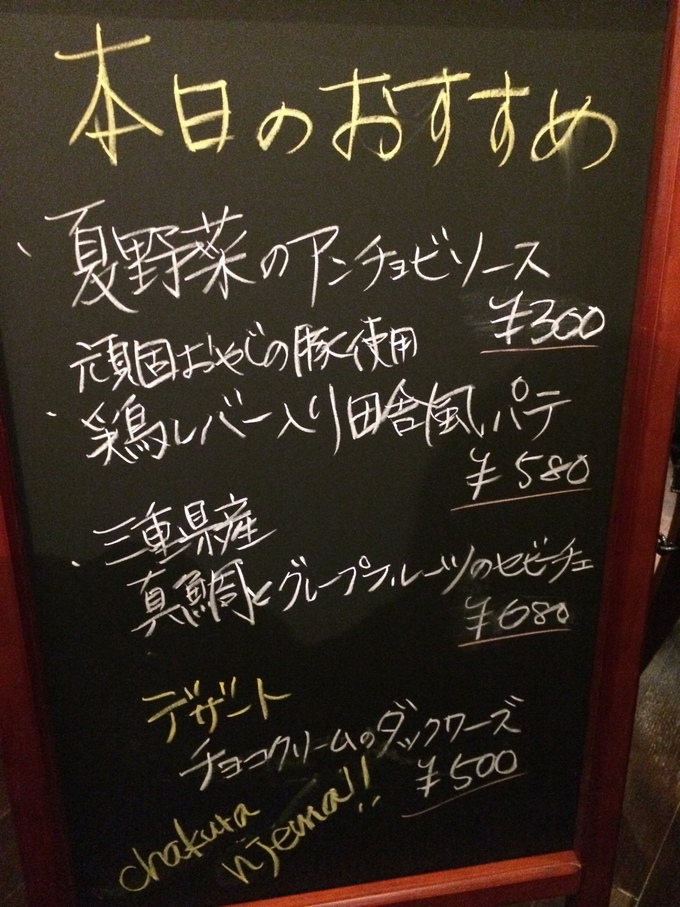 本日のおすすめ
夏野菜のアンチョビソース
¥300
頑固おやじの豚使用
鶏レバー入り田舎風パテ
¥580
三重県産
真鯛とグレープフルーツのセビーチェ
¥680
デザート
チョコクリームのダックワーズ
¥500
chakura
njema!!